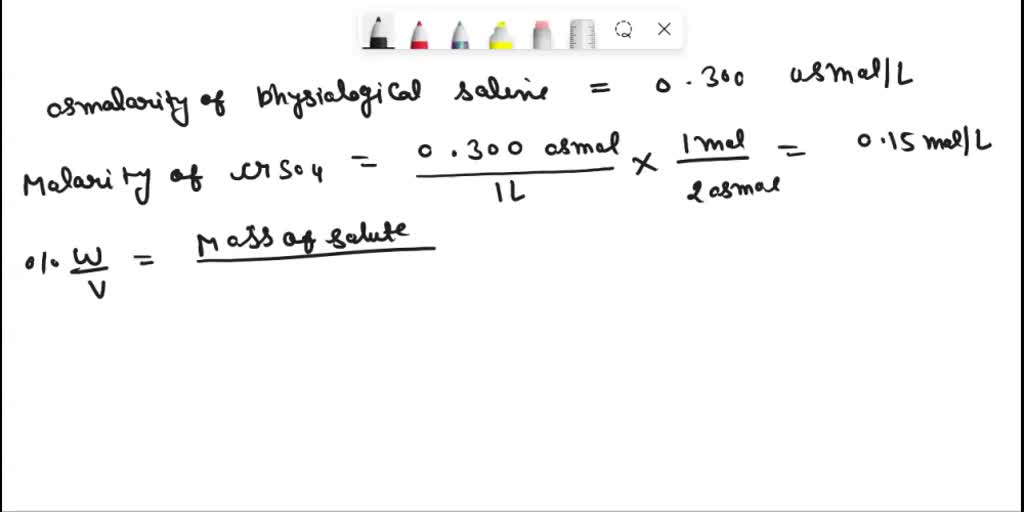 osmolarity of physiological saline = 0.300 osmol/L
Molarity of CrSO4 = 0.300 osmol / 1L × 1 mol / 2 osmol = 0.15 mol/L
% W/V = Mass of solute